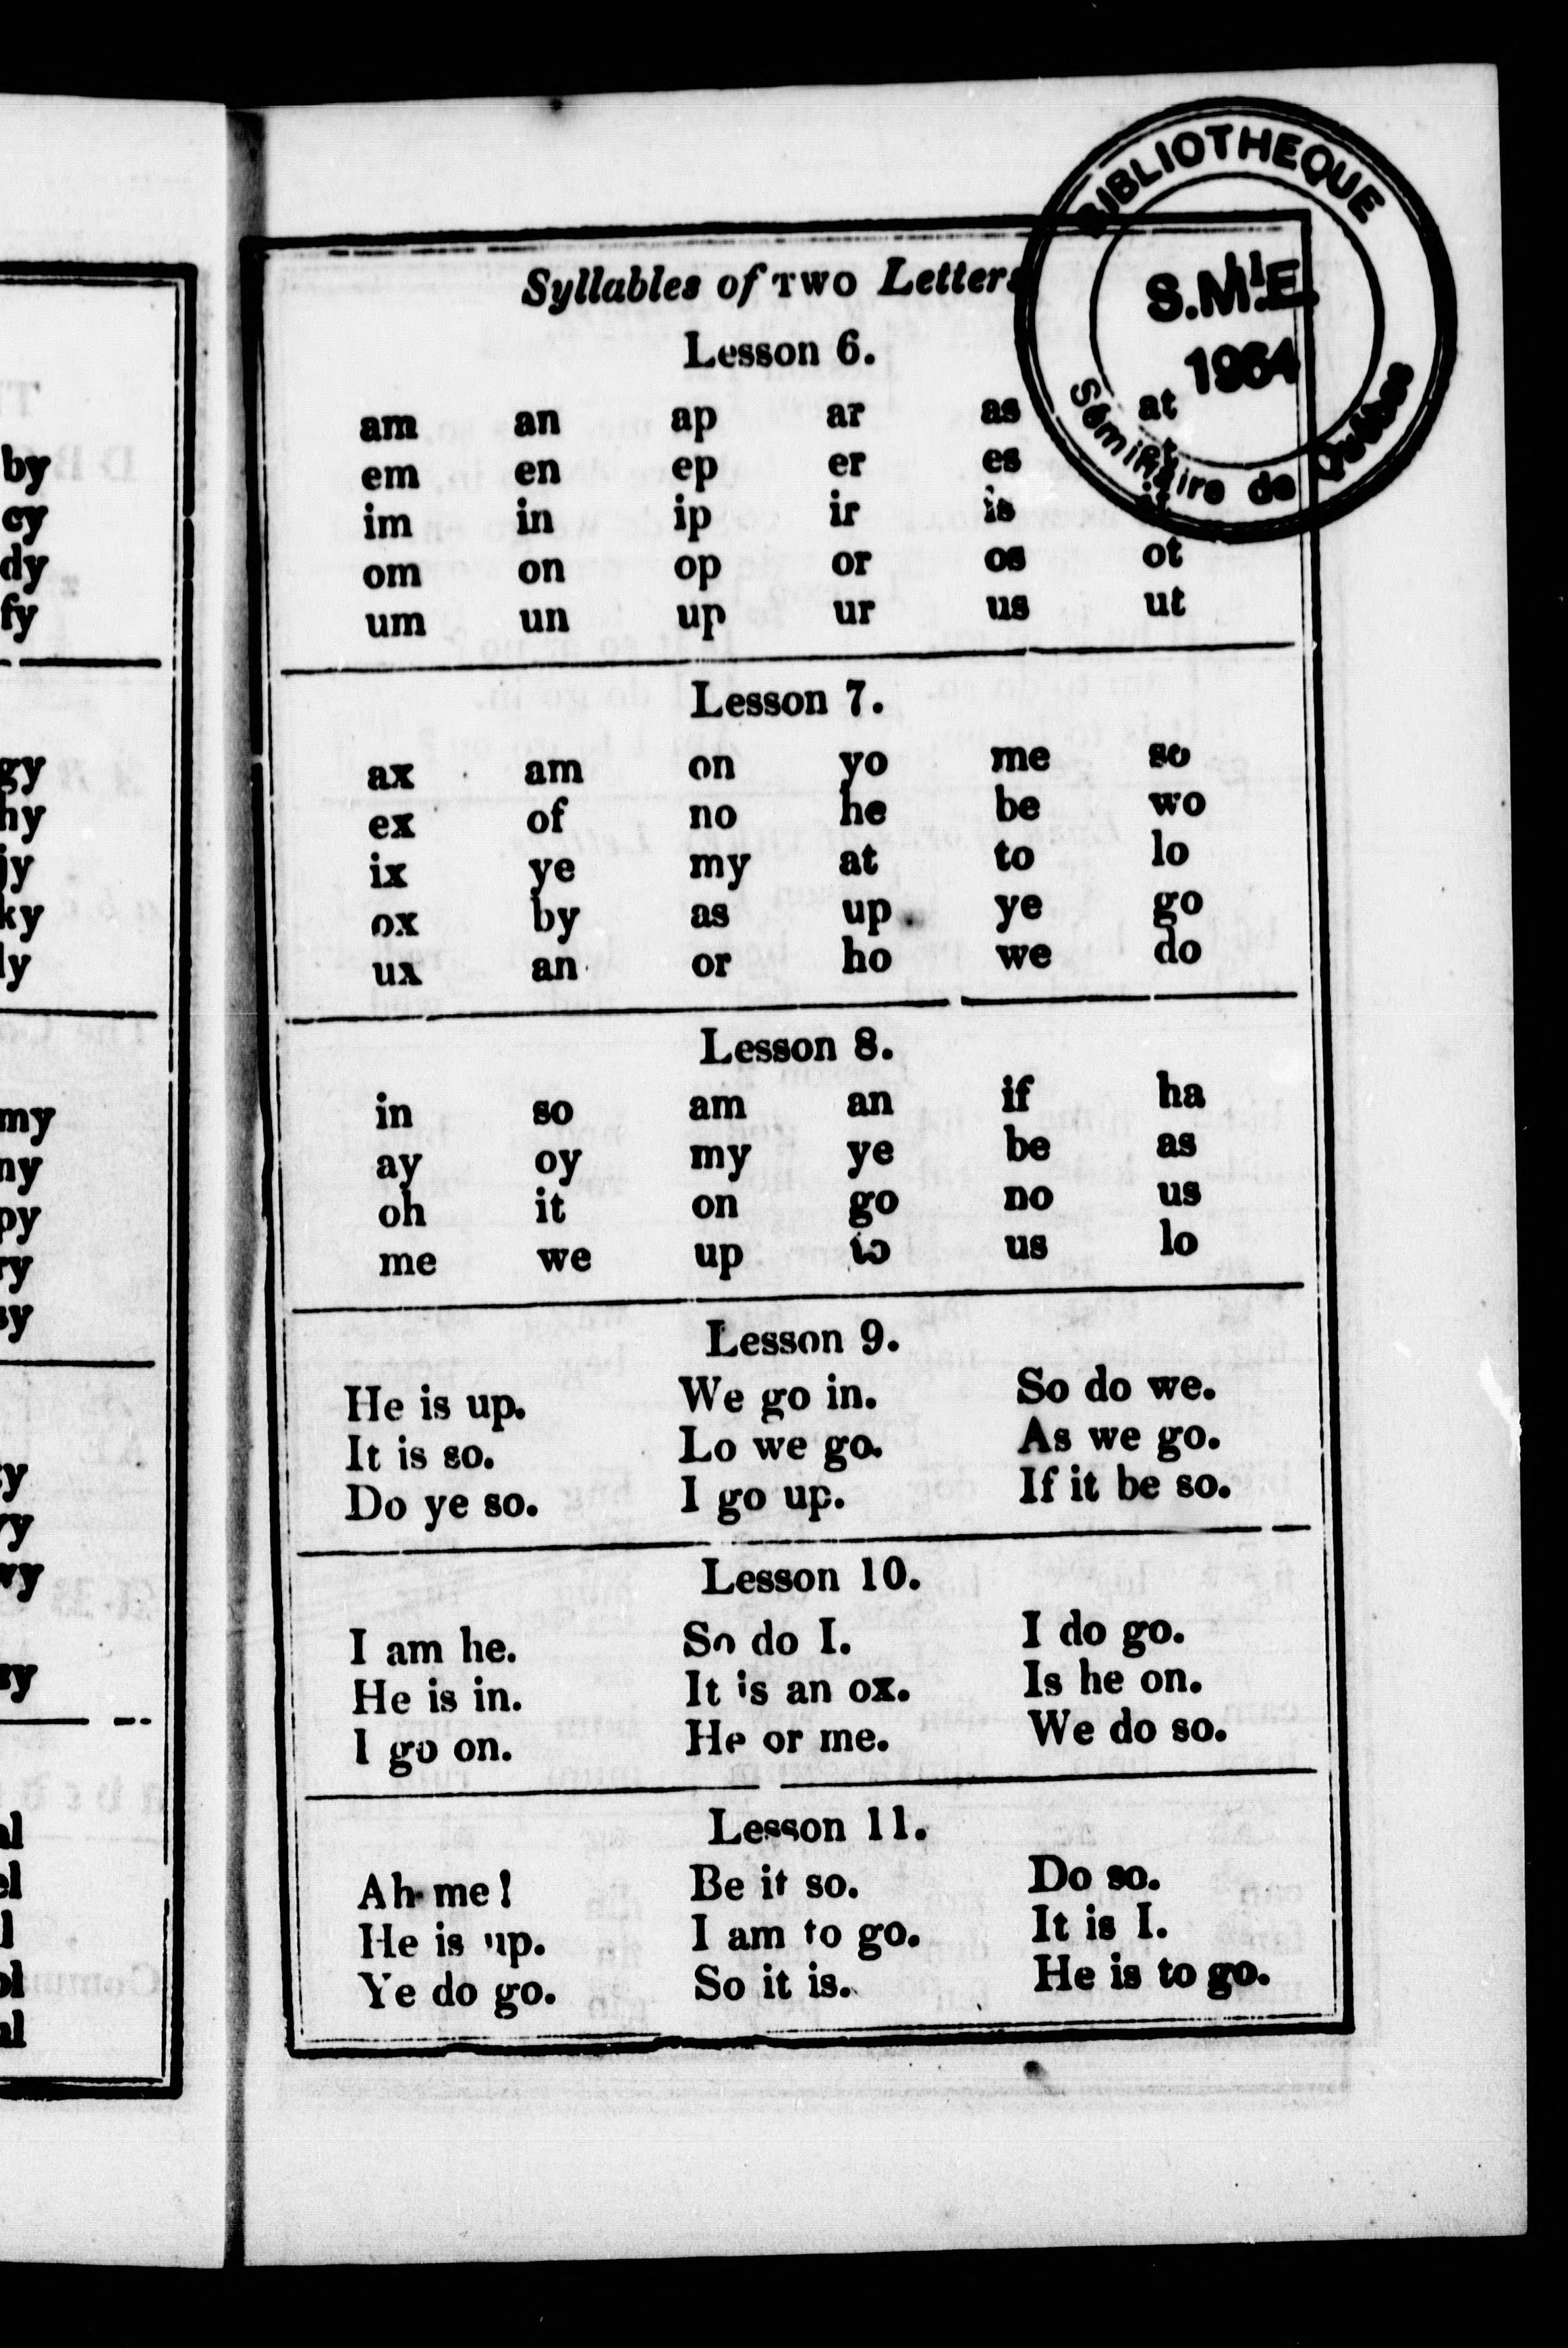 by
cy
dy
fy
gy
hy
jy
ky
ly
my
ny
py
ry
sy
ty
vy
wy
zy
al
el
il
ol
ul
BIBLIOTHEQUE
S.M.E.
1964
Séminaire de Québec
Syllables of TWO Letters
Lesson 6.
am an ap ar as at
em en ep er es et
im in ip ir is it
om on op or os ot
um un up ur us ut
Lesson 7.
ax am on yo me so
ex of no he be wo
ix ye my at to lo
ox by as up ye go
ux an or ho we do
Lesson 8.
in so am an if ha
ay oy my ye be as
oh it on go no us
me we up to us lo
Lesson 9.
He is up. We go in. So do we.
It is so. Lo we go. As we go.
Do ye so. I go up. If it be so.
Lesson 10.
I am he. So do I. I do go.
He is in. It is an ox. Is he on.
I go on. He or me. We do so.
Lesson 11.
Ah me! Be it so. Do so.
He is up. I am to go. It is I.
Ye do go. So it is. He is to go.